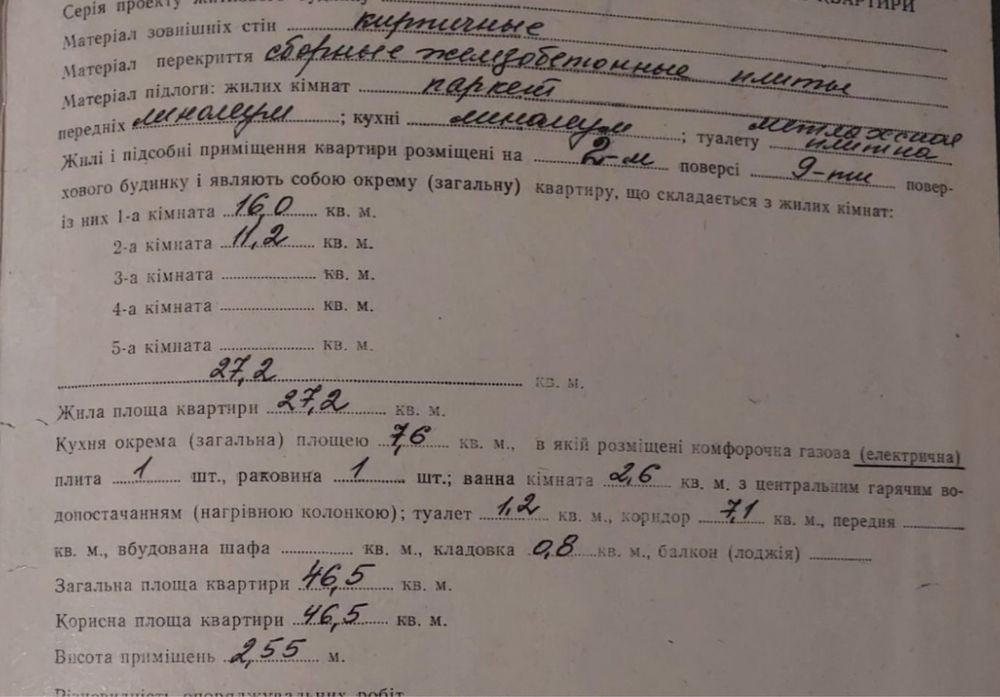 КВАРТИРИ
Серія проекту житлового будинку
Матеріал зовнішніх стін кирпичные
Матеріал перекриття сборные железобетонные плиты
Матеріал підлоги: жилих кімнат паркет
передніх линолеум; кухні линолеум; туалету метлахская плитка
Жилі і підсобні приміщення квартири розміщені на 2-м поверсі 9-ти повер-
хового будинку і являють собою окрему (загальну) квартиру, що складається з жилих кімнат:
із них 1-а кімната 16,0 кв. м.
2-а кімната 11,2 кв. м.
3-а кімната кв. м.
4-а кімната кв. м.
5-а кімната кв. м.
27,2 кв. м.
Жила площа квартири 27,2 кв. м.
Кухня окрема (загальна) площею 7,6 кв. м., в якій розміщені комфорочна газова (електрична)
плита 1 шт., раковина 1 шт.; ванна кімната 2,6 кв. м. з центральним гарячим во-
допостачанням (нагрівною колонкою); туалет 1,2 кв. м., коридор 7,1 кв. м., передня
кв. м., вбудована шафа кв. м., кладовка 0,8 кв. м., балкон (лоджія)
Загальна площа квартири 46,5 кв. м.
Корисна площа квартири 46,5 кв. м.
Висота приміщень 2,55 м.
Різновидність опоряджувальних робіт